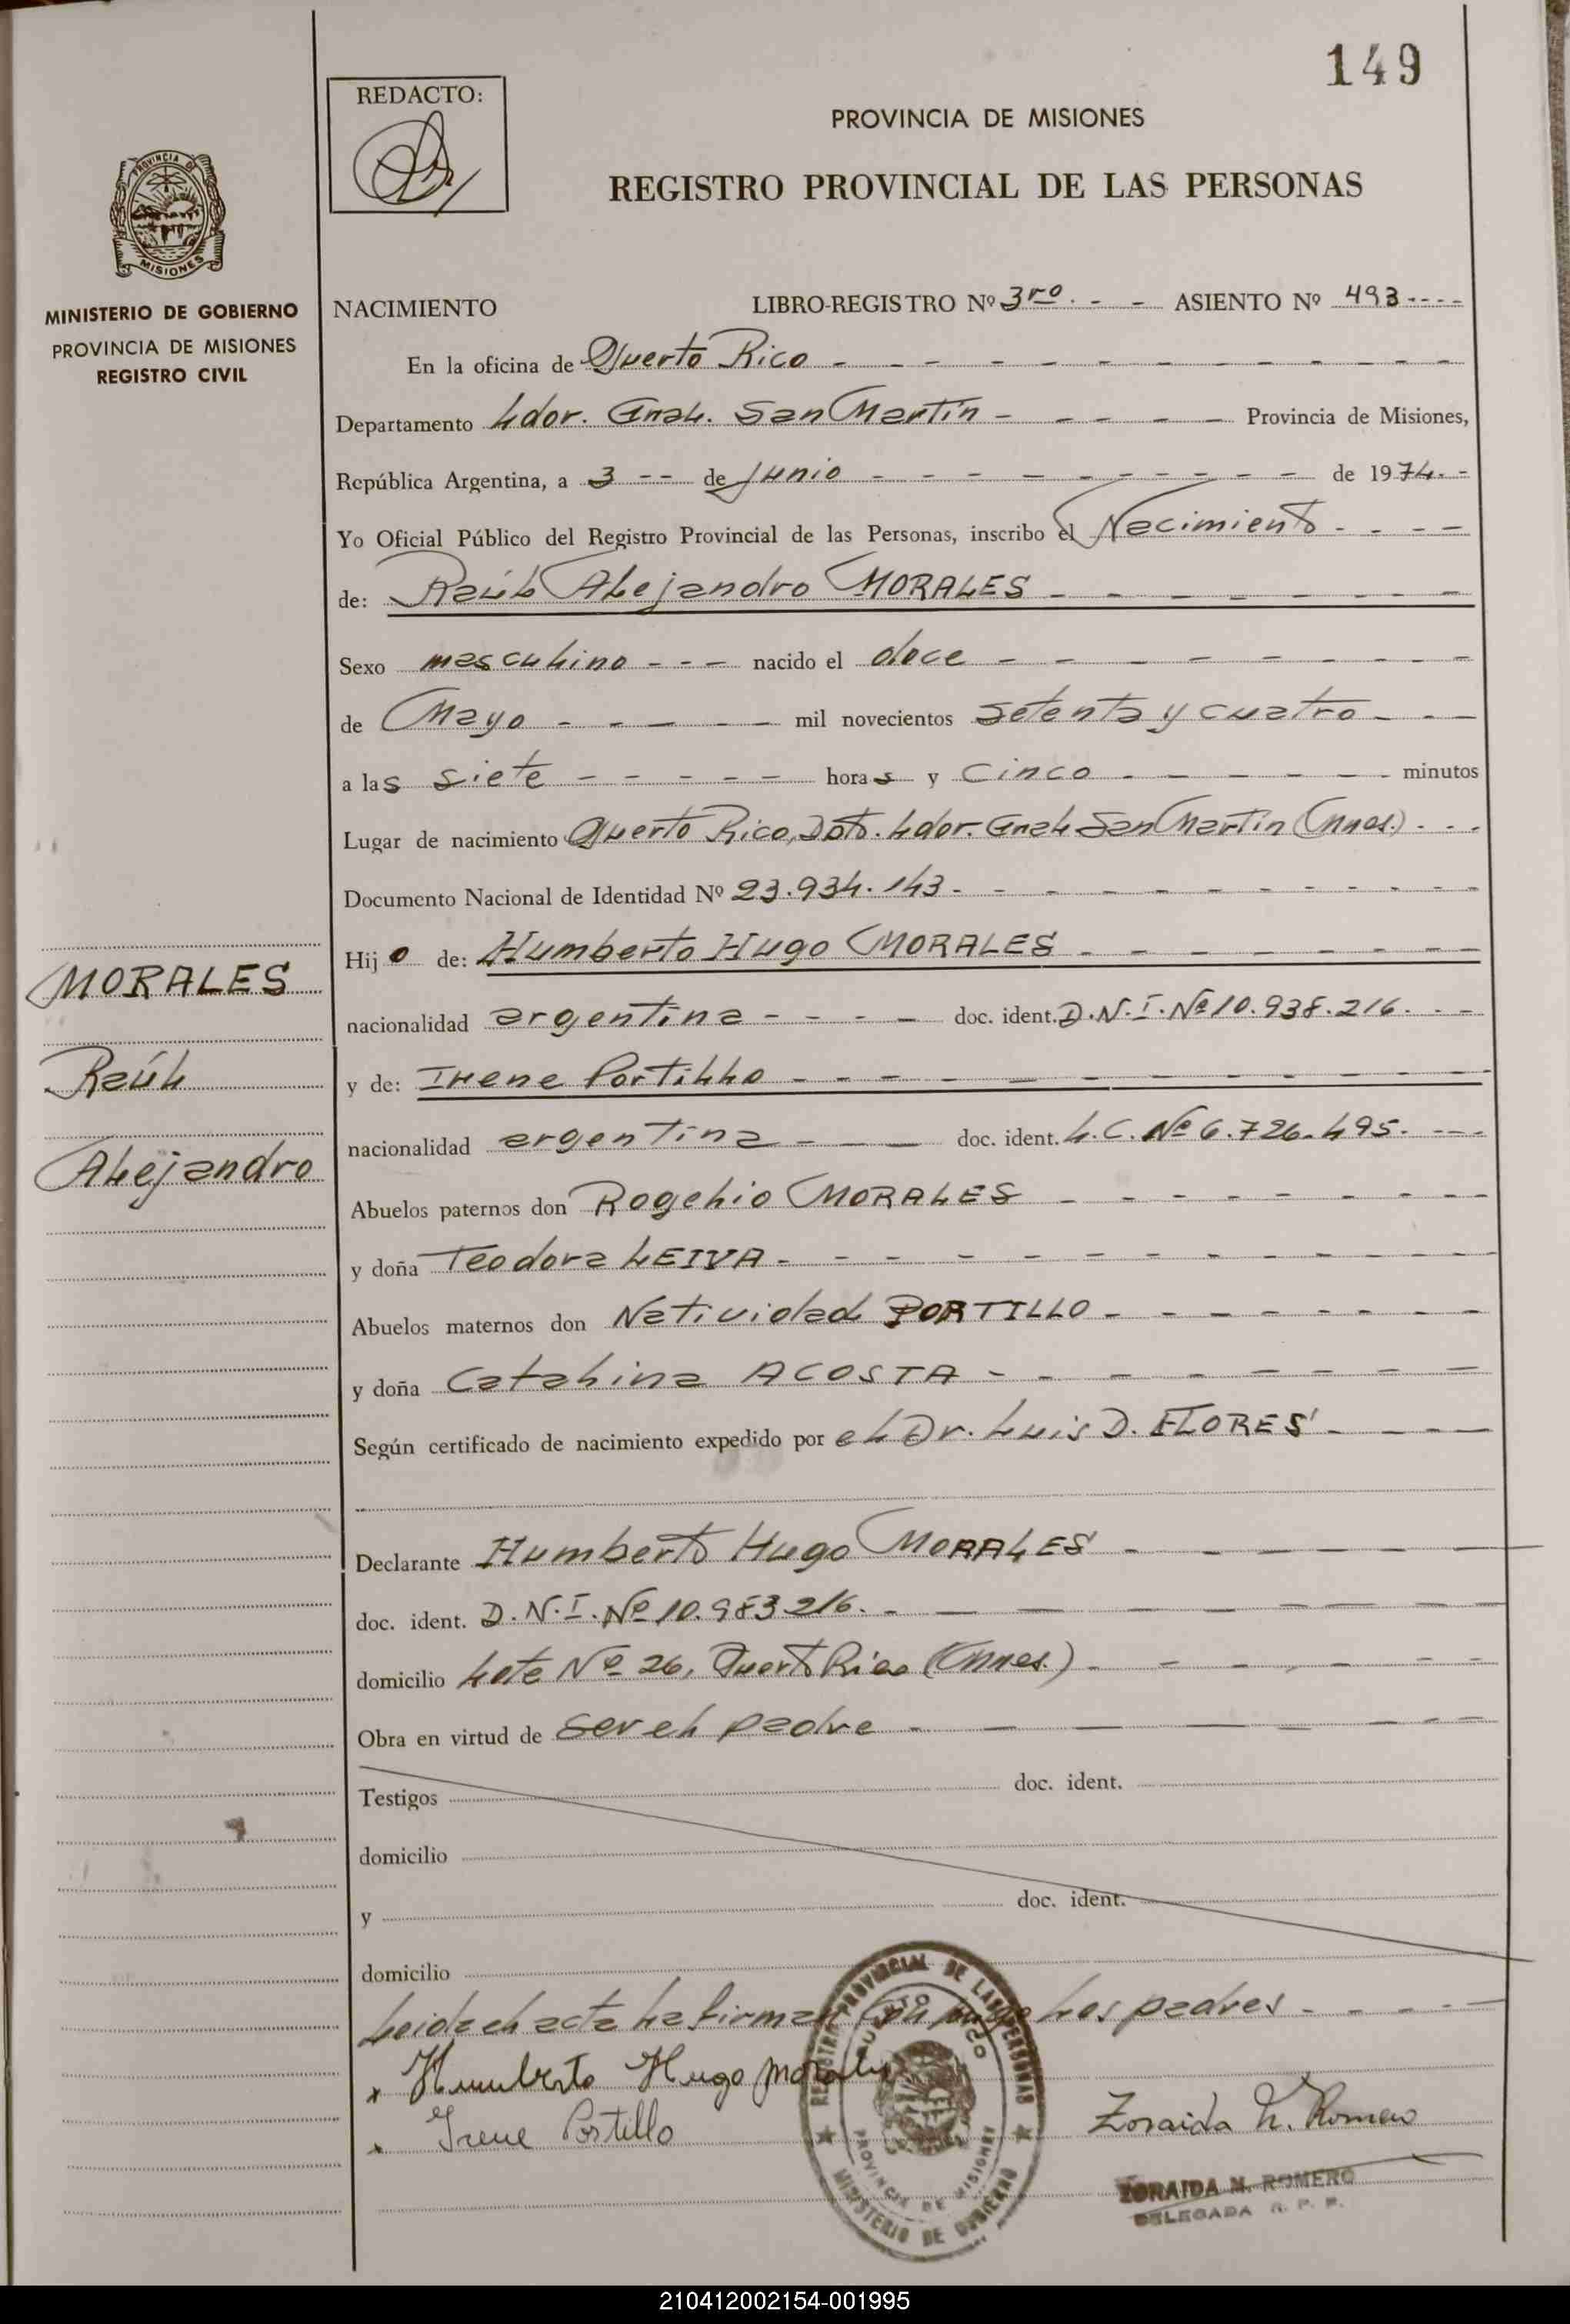 149
REDACTO:
PROVINCIA DE MISIONES
REGISTRO PROVINCIAL DE LAS PERSONAS
PROVINCIA DE
MISIONES
MINISTERIO DE GOBIERNO
PROVINCIA DE MISIONES
REGISTRO CIVIL
NACIMIENTO LIBRO-REGISTRO Nº 3ro. - - ASIENTO Nº 493 ----
En la oficina de Puerto Rico - - - - - - - - - -
Departamento Ldor. Gral. San Martín - - - - - Provincia de Misiones,
República Argentina, a 3 -- de Junio - - - - - - - - - de 1974. -
Yo Oficial Público del Registro Provincial de las Personas, inscribo el Nacimiento - - - -
de: Raúl Alejandro MORALES - - - - - - - -
Sexo masculino - - - nacido el doce - - - - - - - - -
de Mayo - - - - - mil novecientos setenta y cuatro - - -
a las siete - - - - - horas y cinco - - - - - minutos
Lugar de nacimiento Puerto Rico, Dpto. Ldor. Gral San Martín (Mnes.) - - -
Documento Nacional de Identidad Nº 23.934.143 - - - - - - - - - -
Hijo de: Humberto Hugo MORALES - - - - - - -
nacionalidad argentina - - - - doc. ident. D.N.I. Nº 10.938.216. - - -
y de: Irene Portillo - - - - - - - - - - -
nacionalidad argentina - - - doc. ident. L.C. Nº 6.726.495. ---
Abuelos paternos don Rogelio MORALES - - - - - - - - -
y doña Teodora LEIVA - - - - - - - - - - - -
Abuelos maternos don Natividad PORTILLO - - - - - - - -
y doña Catalina ACOSTA - - - - - - - -
Según certificado de nacimiento expedido por el Dr. Luis D. FLORES - - - -
Declarante Humberto Hugo MORALES - - - - - -
doc. ident. D.N.I. Nº 10.983216. - - - - - - - - -
domicilio Lote Nº 26, Puerto Rico (Mnes.) - - - - - - -
Obra en virtud de ser el padre - - - - - - -
Testigos doc. ident.
domicilio
y doc. ident.
domicilio
Leida el acta la firman los padres - - - - -
x Humberto Hugo Morales
x Irene Portillo
REGISTRO PROVINCIAL DE LAS PERSONAS
PUERTO RICO
PROVINCIA DE MISIONES
MINISTERIO DE GOBIERNO
Zoraida N. Romero
ZORAIDA N. ROMERO
DELEGADA R. P. P.
MORALES
Raúl
Alejandro
210412002154-001995